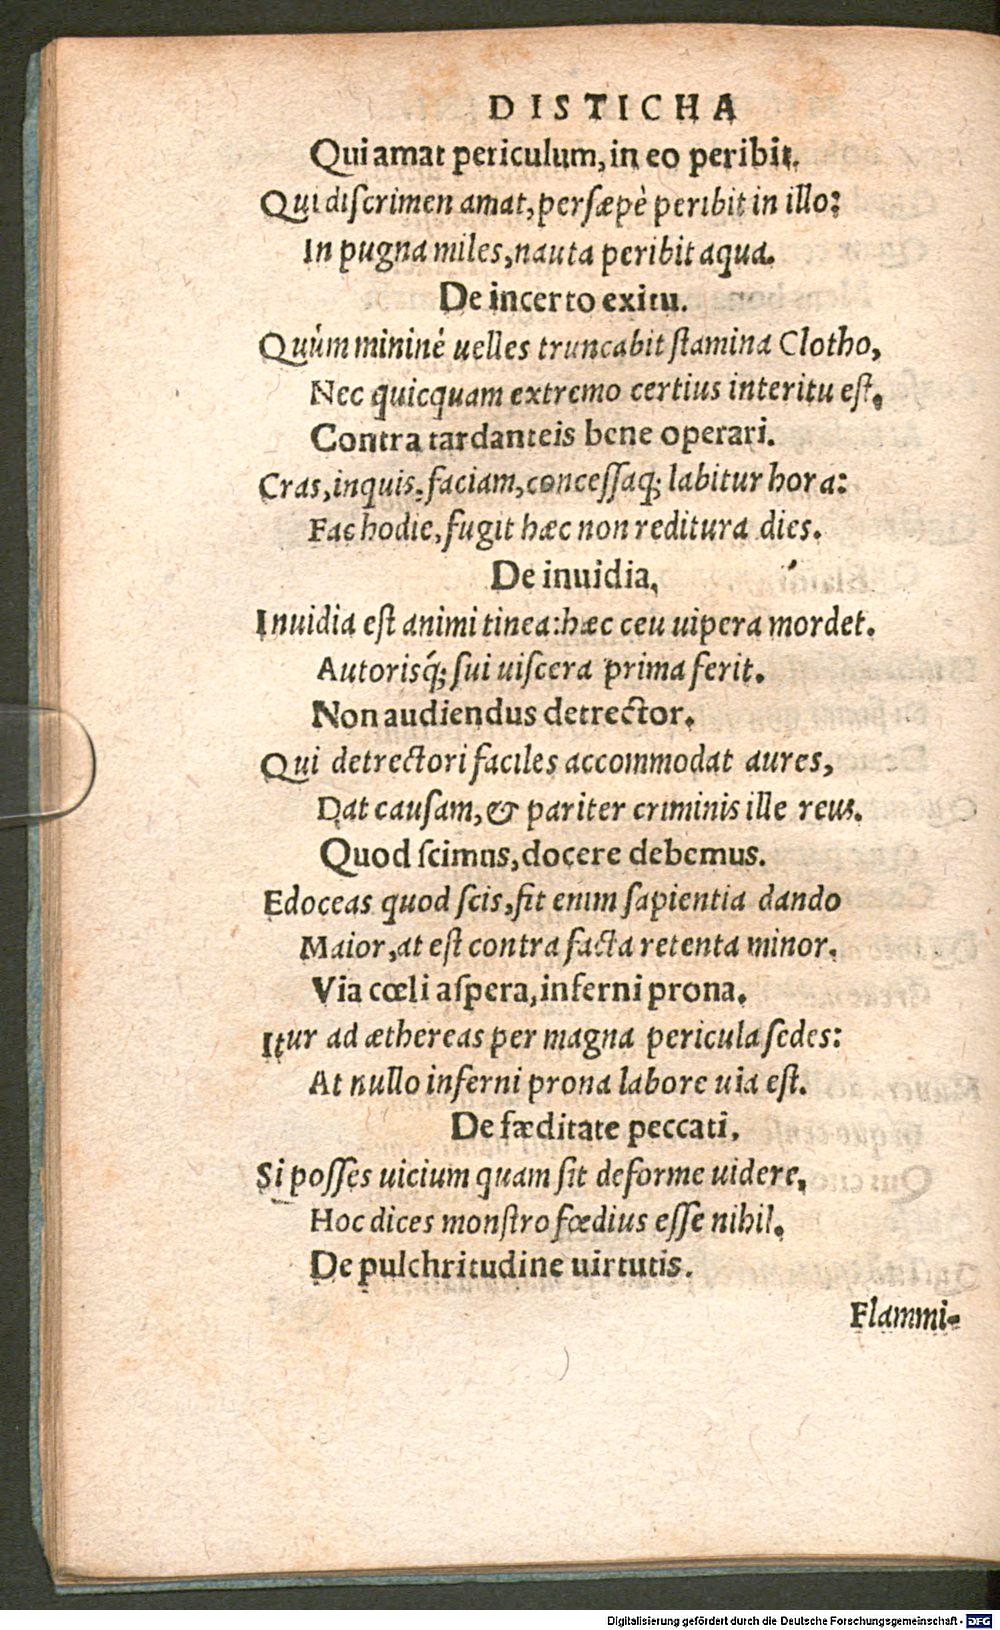 DISTICHA
Qui amat periculum, in eo peribit.
Qui discrimen amat, persæpè peribit in illo:
In pugna miles, nauta peribit aqua.
De incerto exitu.
Quùm mininè uelles truncabit stamina Clotho,
Nec quicquam extremo certius interitu est.
Contra tardanteis bene operari.
Cras, inquis, faciam, concessaq; labitur hora:
Fac hodie, fugit hæc non reditura dies.
De inuidia,
Inuidia est animi tinea: hæc ceu uipera mordet.
Autorisq́; sui uiscera prima ferit.
Non audiendus detrector.
Qui detrectori faciles accommodat aures,
Dat causam, & pariter criminis ille reus.
Quod scimus, docere debemus.
Edoceas quod scis, fit enim sapientia dando
Maior, at est contra facta retenta minor.
Via cœli aspera, inferni prona.
Itur ad æthereas per magna pericula sedes:
At nullo inferni prona labore uia est.
De fæditate peccati.
Si posses uicium quam sit deforme uidere,
Hoc dices monstro fœdius esse nihil.
De pulchritudine uirtutis.
Flammi-
Digitalisierung gefördert durch die Deutsche Forschungsgemeinschaft - DFG